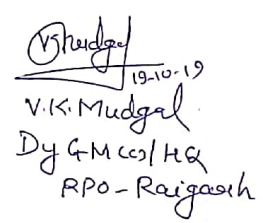 19-10-19
V.K. Mudgal
Dy GM (C)/HQ
RPO-Raigarh